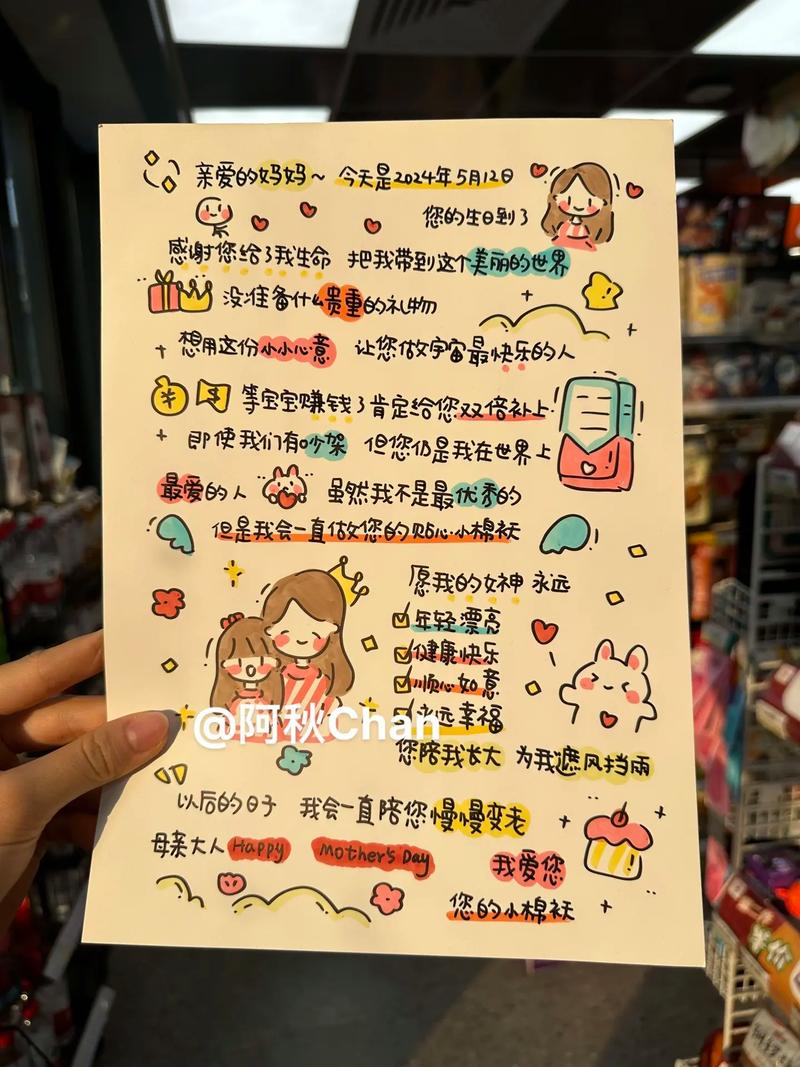 亲爱的妈妈~ 今天是2024年5月12日
您的生日到了
感谢您给了我生命 把我带到这个美丽的世界
没准备什么贵重的礼物
想用这份小小心意 让您做宇宙最快乐的人
等宝宝赚钱了肯定给您双倍补上
即使我们有吵架 但您仍是我在世界上
最爱的人 虽然我不是最优秀的
但是我会一直做您的贴心小棉袄
愿我的女神 永远
年轻漂亮
健康快乐
顺心如意
永远幸福
@阿秋Chan
您陪我长大 为我遮风挡雨
以后的日子 我会一直陪您慢慢变老
母亲大人 Happy Mother's Day
我爱您
您的小棉袄